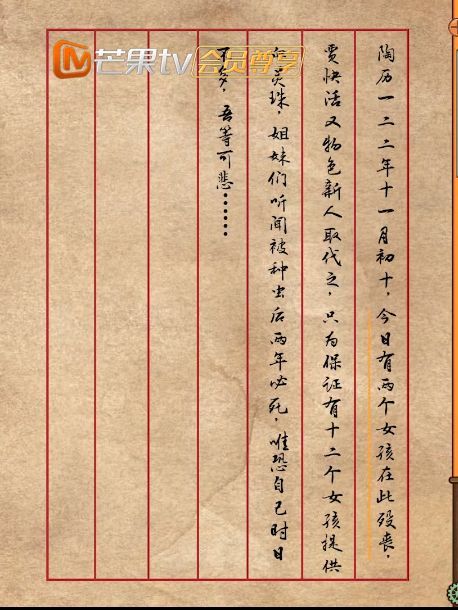 芒果tv 会员尊享
陶历一二二年十一月初十，今日有两个女孩在此殁丧，
贾快活又物色新人取代之，只为保证有十二个女孩提供
灵珠，姐妹们听闻被种虫后两年必死，唯恐自己时日
多，吾等可悲……